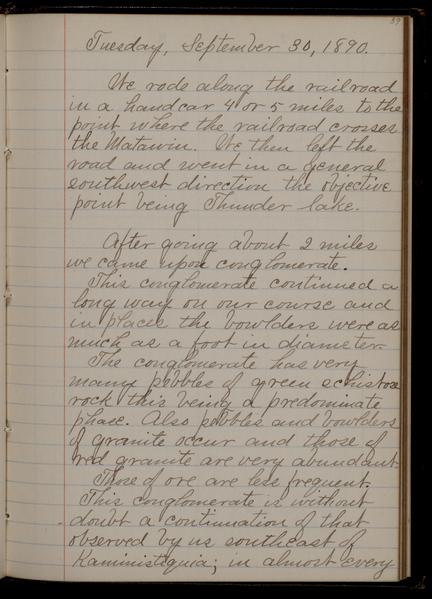 59
Tuesday, September 30, 1890.
We rode along the railroad
in a handcar 4 or 5 miles to the
point where the railroad crosses
the Matawin. We then left the
road and went in a general
southwest direction the objective
point being Thunder lake.
After going about 2 miles
we came upon conglomerate.
This conglomerate continued a
long way on our course and
in places the bowlders were as
much as a foot in diameter.
The conglomerate has very
many pebbles of green schistose
rock this being a predominate
phase. Also pebbles and bowlders
of granite occur and those of
red granite are very abundant.
Those of ore are less frequent.
This conglomerate is without
doubt a continuation of that
observed by us southeast of
Kaministiquia; in almost every